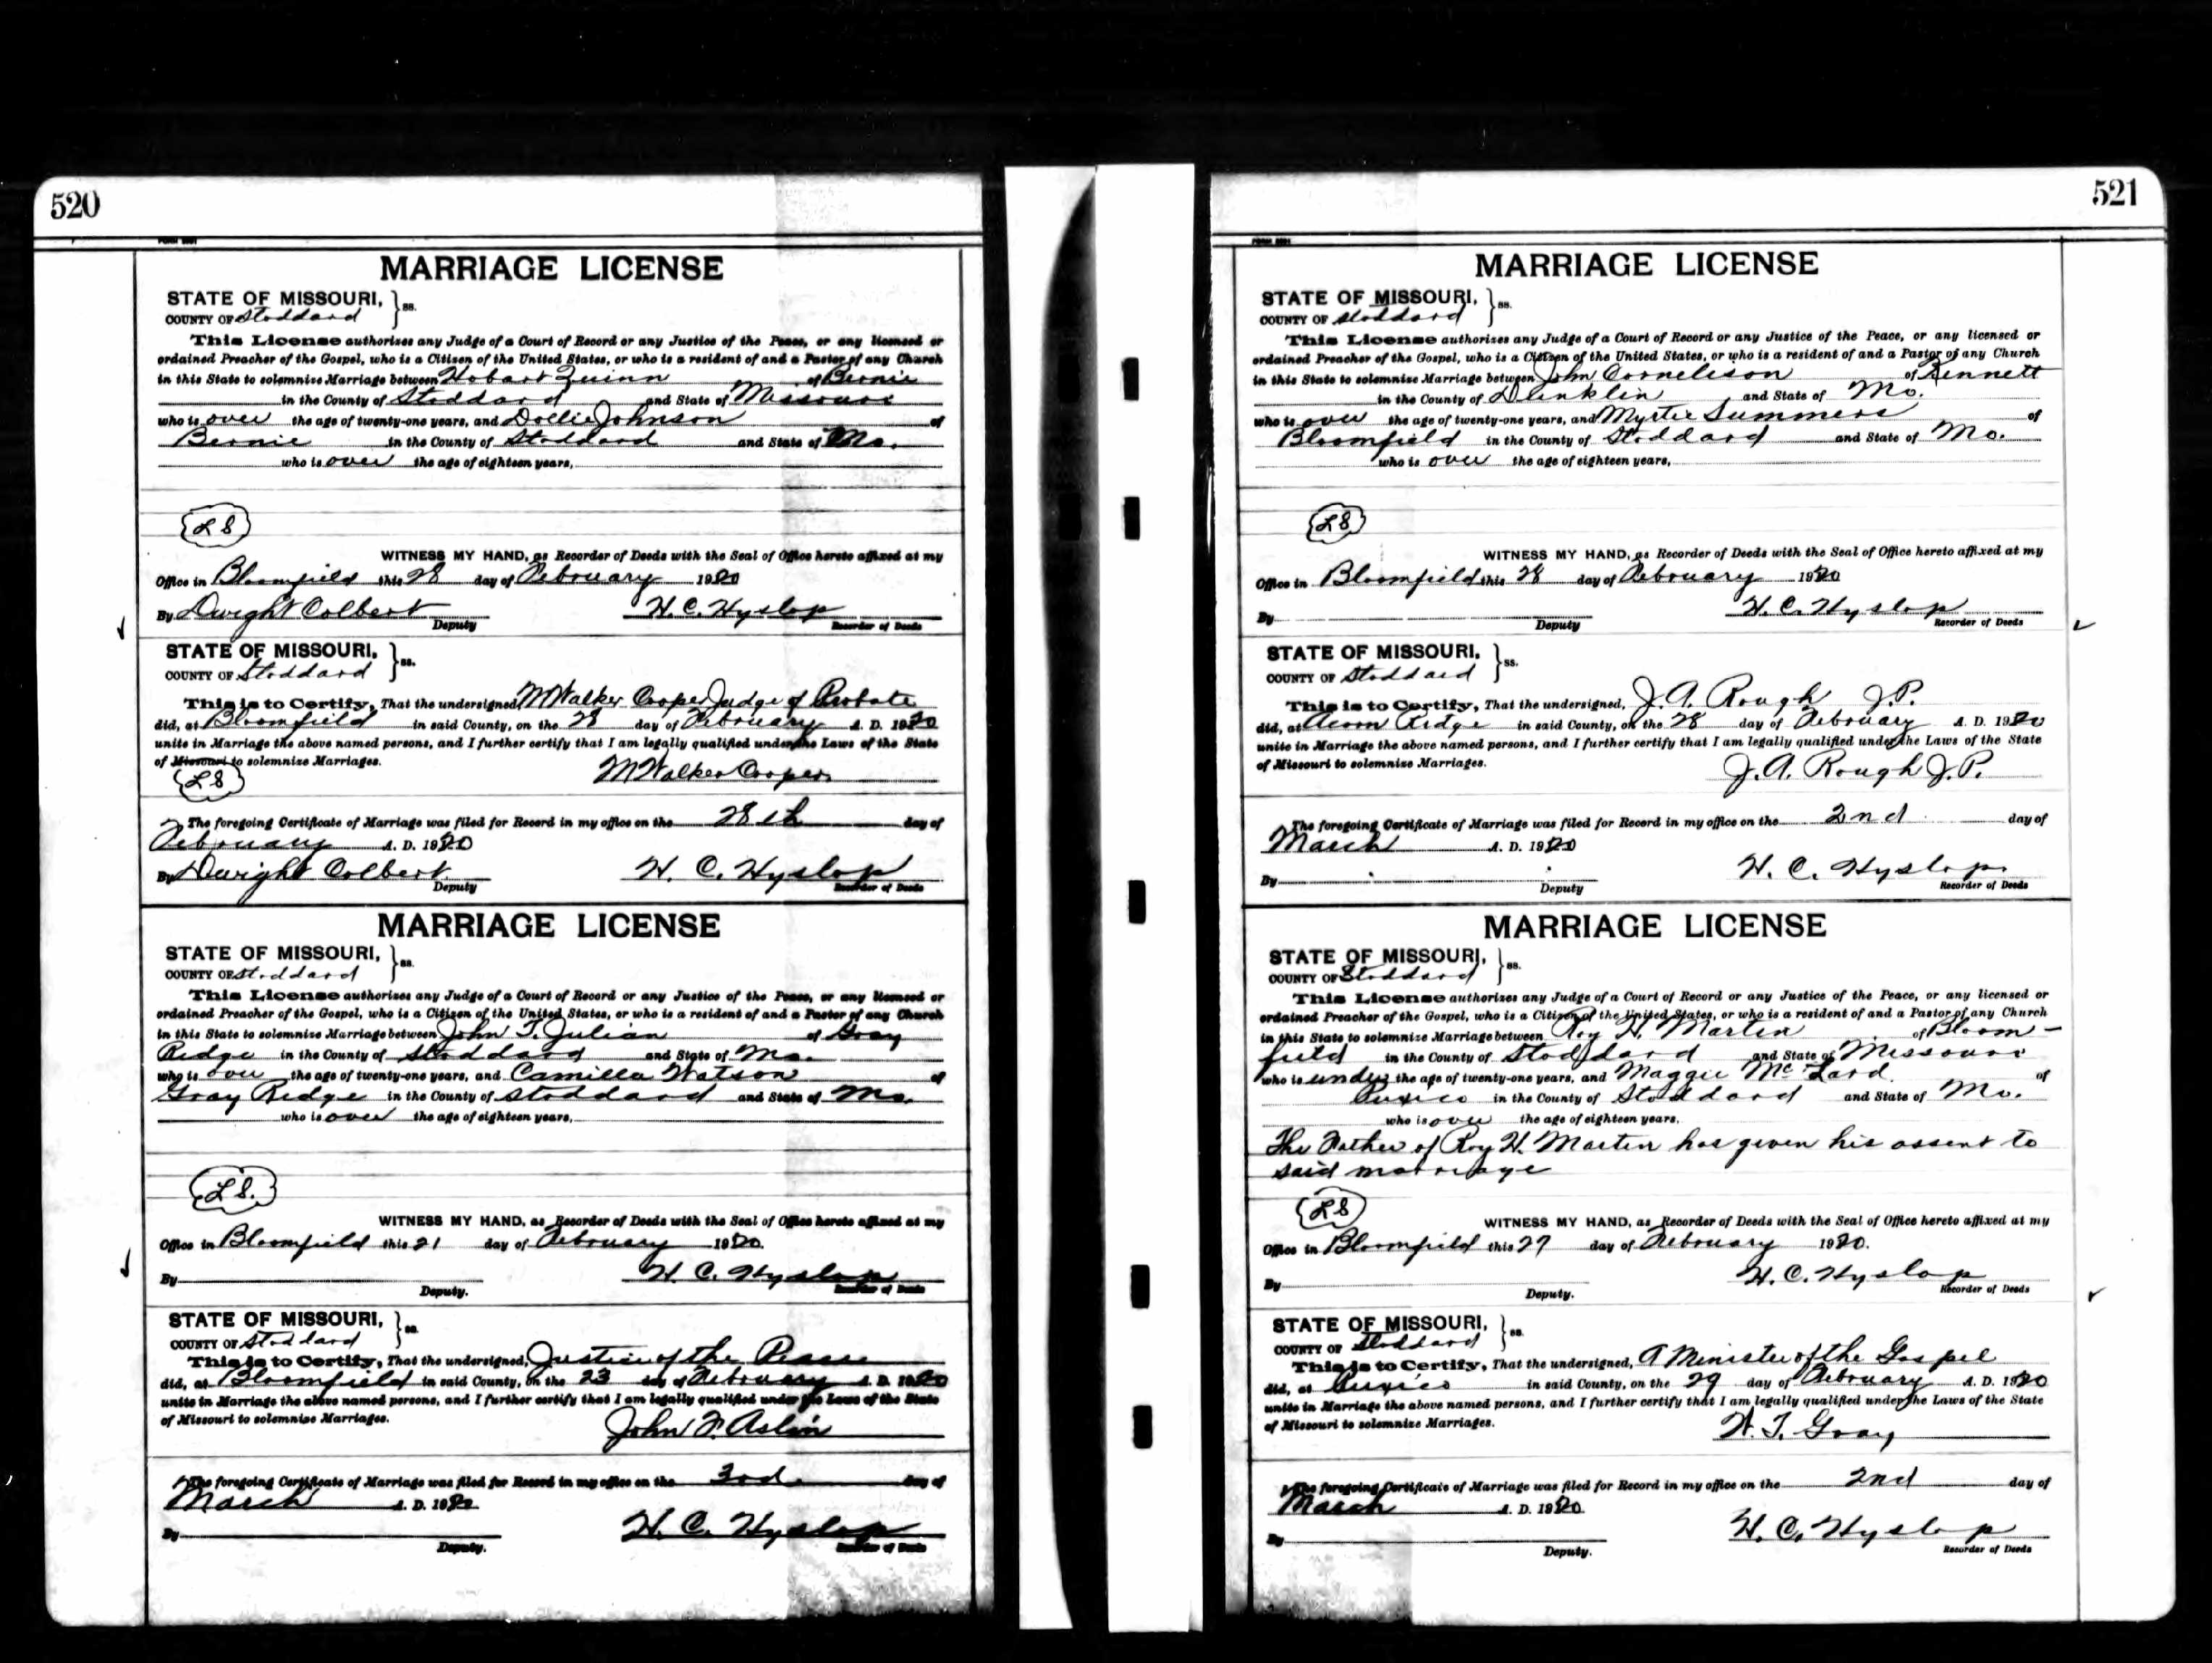 520
FORM 2001
MARRIAGE LICENSE
STATE OF MISSOURI, } ss.
COUNTY OF Stoddard
This License authorizes any Judge of a Court of Record or any Justice of the Peace, or any licensed or
ordained Preacher of the Gospel, who is a Citizen of the United States, or who is a resident of and a Pastor of any Church
in this State to solemnize Marriage between Hobart Quinn of Bernie
in the County of Stoddard and State of Missouri
who is over the age of twenty-one years, and Dollie Johnson of
Bernie in the County of Stoddard and State of Mo.
who is over the age of eighteen years,
LS
WITNESS MY HAND, as Recorder of Deeds with the Seal of Office hereto affixed at my
Office in Bloomfield this 28 day of February 1920
By Dwight Colbert H. C. Hyslop
Deputy Recorder of Deeds
STATE OF MISSOURI, } ss.
COUNTY OF Stoddard
This is to Certify, That the undersigned, M Walker Cooper Judge of Probate
did, at Bloomfield in said County, on the 28 day of February A. D. 1920
unite in Marriage the above named persons, and I further certify that I am legally qualified under the Laws of the State
of Missouri to solemnize Marriages.
LS M Walker Cooper
The foregoing Certificate of Marriage was filed for Record in my office on the 28th day of
February A. D. 1920
By Dwight Colbert H. C. Hyslop
Deputy Recorder of Deeds
MARRIAGE LICENSE
STATE OF MISSOURI, } ss.
COUNTY OF Stoddard
This License authorizes any Judge of a Court of Record or any Justice of the Peace, or any licensed or
ordained Preacher of the Gospel, who is a Citizen of the United States, or who is a resident of and a Pastor of any Church
in this State to solemnize Marriage between John T. Julian of Gray
Ridge in the County of Stoddard and State of Mo.
who is over the age of twenty-one years, and Camilla Watson of
Gray Ridge in the County of Stoddard and State of Mo.
who is over the age of eighteen years,
LS.
WITNESS MY HAND, as Recorder of Deeds with the Seal of Office hereto affixed at my
Office in Bloomfield this 21 day of February 1920.
By H. C. Hyslop
Deputy. Recorder of Deeds
STATE OF MISSOURI, } ss.
COUNTY OF Stoddard
This is to Certify, That the undersigned, Justice of the Peace
did, at Bloomfield in said County, on the 23 day of February A. D. 1920
unite in Marriage the above named persons, and I further certify that I am legally qualified under the Laws of the State
of Missouri to solemnize Marriages.
John F. Aslin
The foregoing Certificate of Marriage was filed for Record in my office on the 3rd day of
March A. D. 1920
By H. C. Hyslop
Deputy. Recorder of Deeds
521
FORM 2001
MARRIAGE LICENSE
STATE OF MISSOURI, } ss.
COUNTY OF Stoddard
This License authorizes any Judge of a Court of Record or any Justice of the Peace, or any licensed or
ordained Preacher of the Gospel, who is a Citizen of the United States, or who is a resident of and a Pastor of any Church
in this State to solemnize Marriage between John Cornelison of Kennett
in the County of Dunklin and State of Mo.
who is over the age of twenty-one years, and Myrtie Summers of
Bloomfield in the County of Stoddard and State of Mo.
who is over the age of eighteen years,
LS
WITNESS MY HAND, as Recorder of Deeds with the Seal of Office hereto affixed at my
Office in Bloomfield this 28 day of February 1920
By H. C. Hyslop
Deputy Recorder of Deeds
STATE OF MISSOURI, } ss.
COUNTY OF Stoddard
This is to Certify, That the undersigned, J. A. Rough J.P.
did, at Acorn Ridge in said County, on the 28 day of February A. D. 1920
unite in Marriage the above named persons, and I further certify that I am legally qualified under the Laws of the State
of Missouri to solemnize Marriages.
J. A. Rough J.P.
The foregoing Certificate of Marriage was filed for Record in my office on the 2nd day of
March A. D. 1920
By H. C. Hyslop
Deputy Recorder of Deeds
MARRIAGE LICENSE
STATE OF MISSOURI, } ss.
COUNTY OF Stoddard
This License authorizes any Judge of a Court of Record or any Justice of the Peace, or any licensed or
ordained Preacher of the Gospel, who is a Citizen of the United States, or who is a resident of and a Pastor of any Church
in this State to solemnize Marriage between Roy H. Martin of Bloom-
field in the County of Stoddard and State of Missouri
who is under the age of twenty-one years, and Maggie McLard of
Puxico in the County of Stoddard and State of Mo.
who is over the age of eighteen years.
The Father of Roy H. Martin has given his assent to
said marriage
LS
WITNESS MY HAND, as Recorder of Deeds with the Seal of Office hereto affixed at my
Office in Bloomfield this 27 day of February 1920.
By H. C. Hyslop
Deputy. Recorder of Deeds
STATE OF MISSOURI, } ss.
COUNTY OF Stoddard
This is to Certify, That the undersigned, A Minister of the Gospel
did, at Puxico in said County, on the 29 day of February A. D. 1920
unite in Marriage the above named persons, and I further certify that I am legally qualified under the Laws of the State
of Missouri to solemnize Marriages.
W. T. Gray
The foregoing Certificate of Marriage was filed for Record in my office on the 2nd day of
March A. D. 1920
By H. C. Hyslop
Deputy. Recorder of Deeds